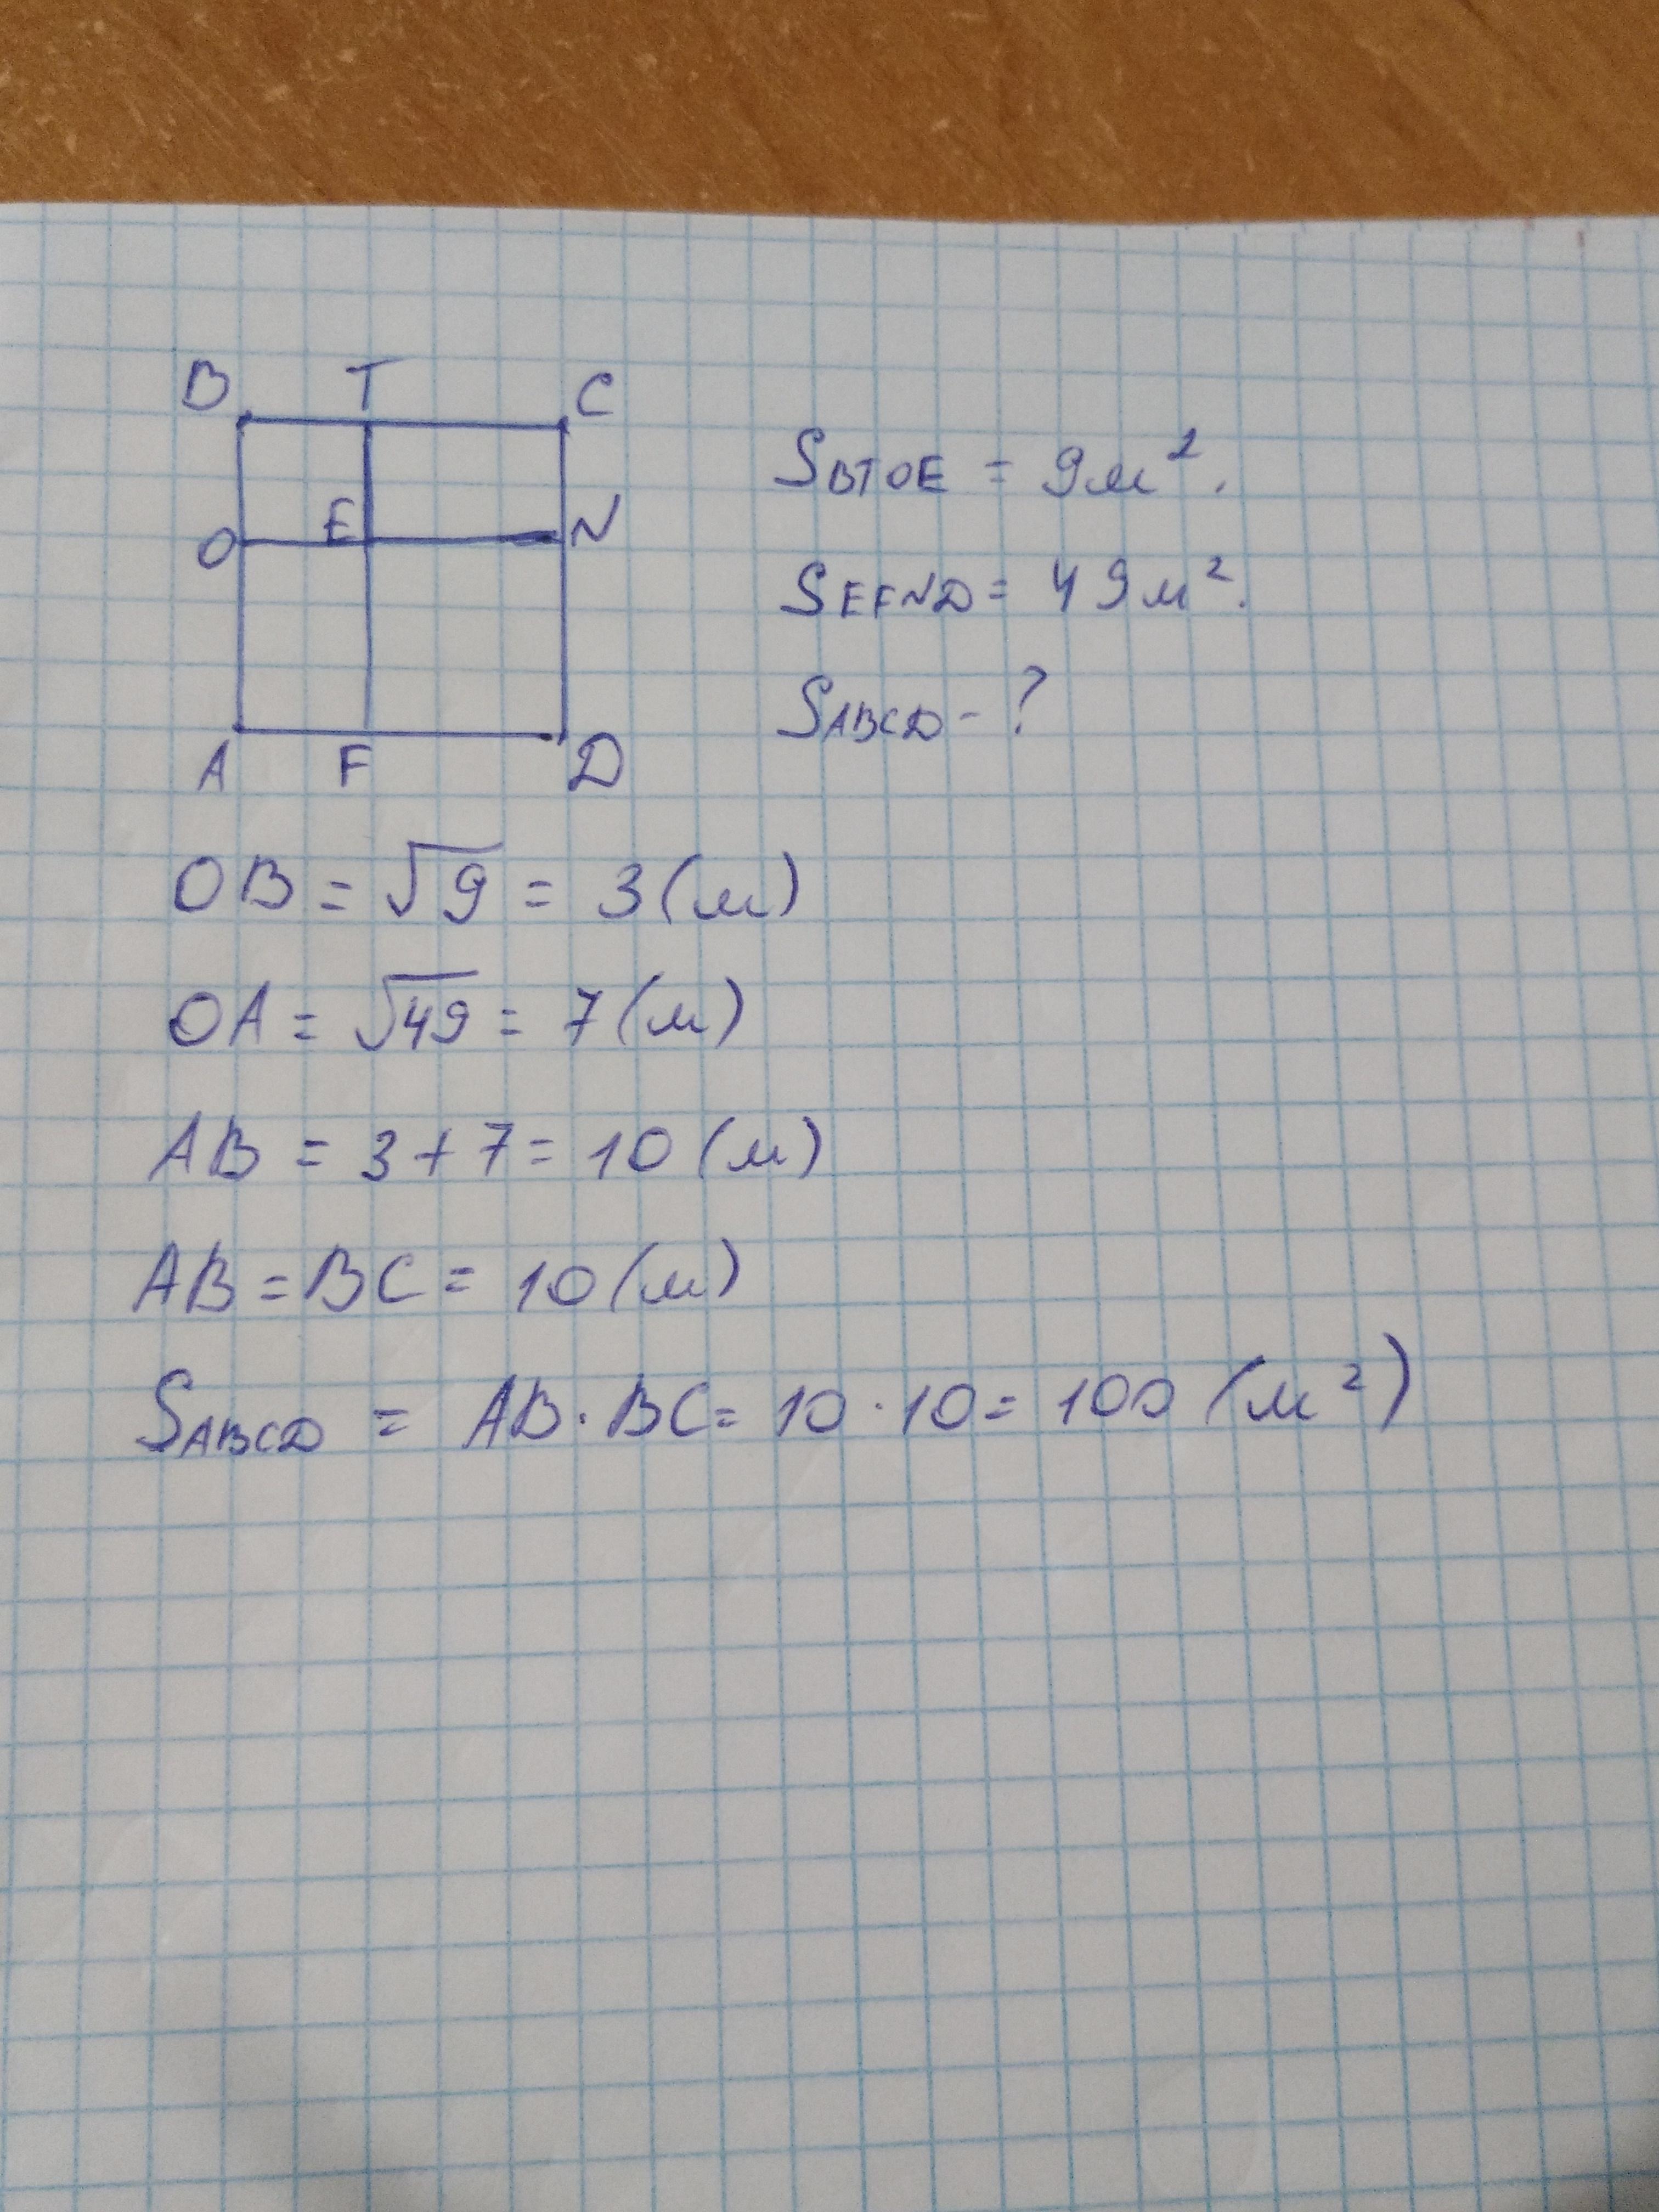 B T C
O E N
A F D
S BTOE = 9 м².
S EFND = 49 м².
S ABCD - ?
OB = √9 = 3 (м)
OA = √49 = 7 (м)
AB = 3 + 7 = 10 (м)
AB = BC = 10 (м)
S ABCD = AB · BC = 10 · 10 = 100 (м²)